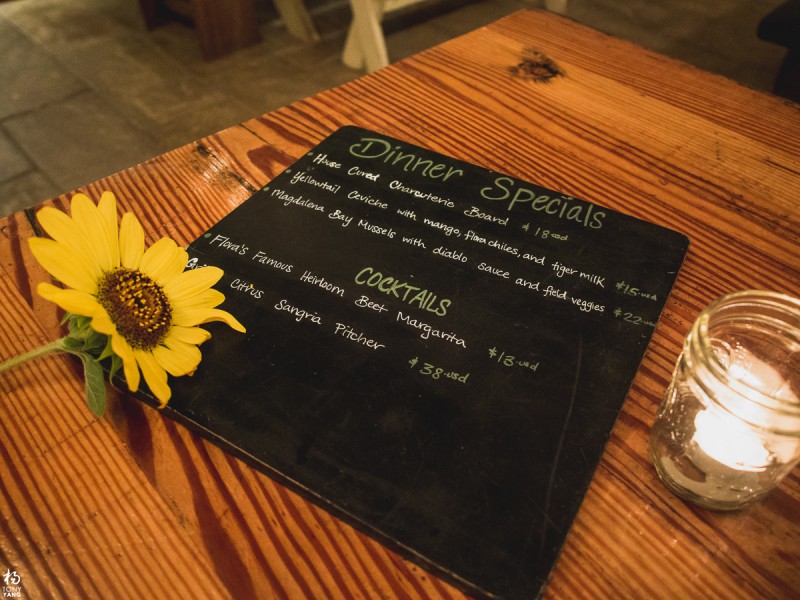 Dinner Specials
House Cured Charcuterie Board $18 usd
Yellowtail Ceviche with mango, flora chiles, and tiger milk $15 usd
Magdalena Bay Mussels with diablo sauce and field veggies $22 usd
COCKTAILS
Flora's Famous Heirloom Beet Margarita $13 usd
Citrus Sangria Pitcher $38 usd
杨
TONY
YANG